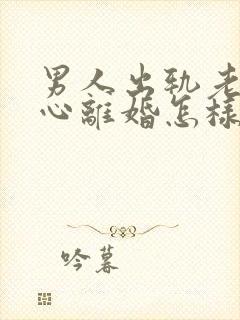 男人出轨老
心離婚怎樣
吟暮